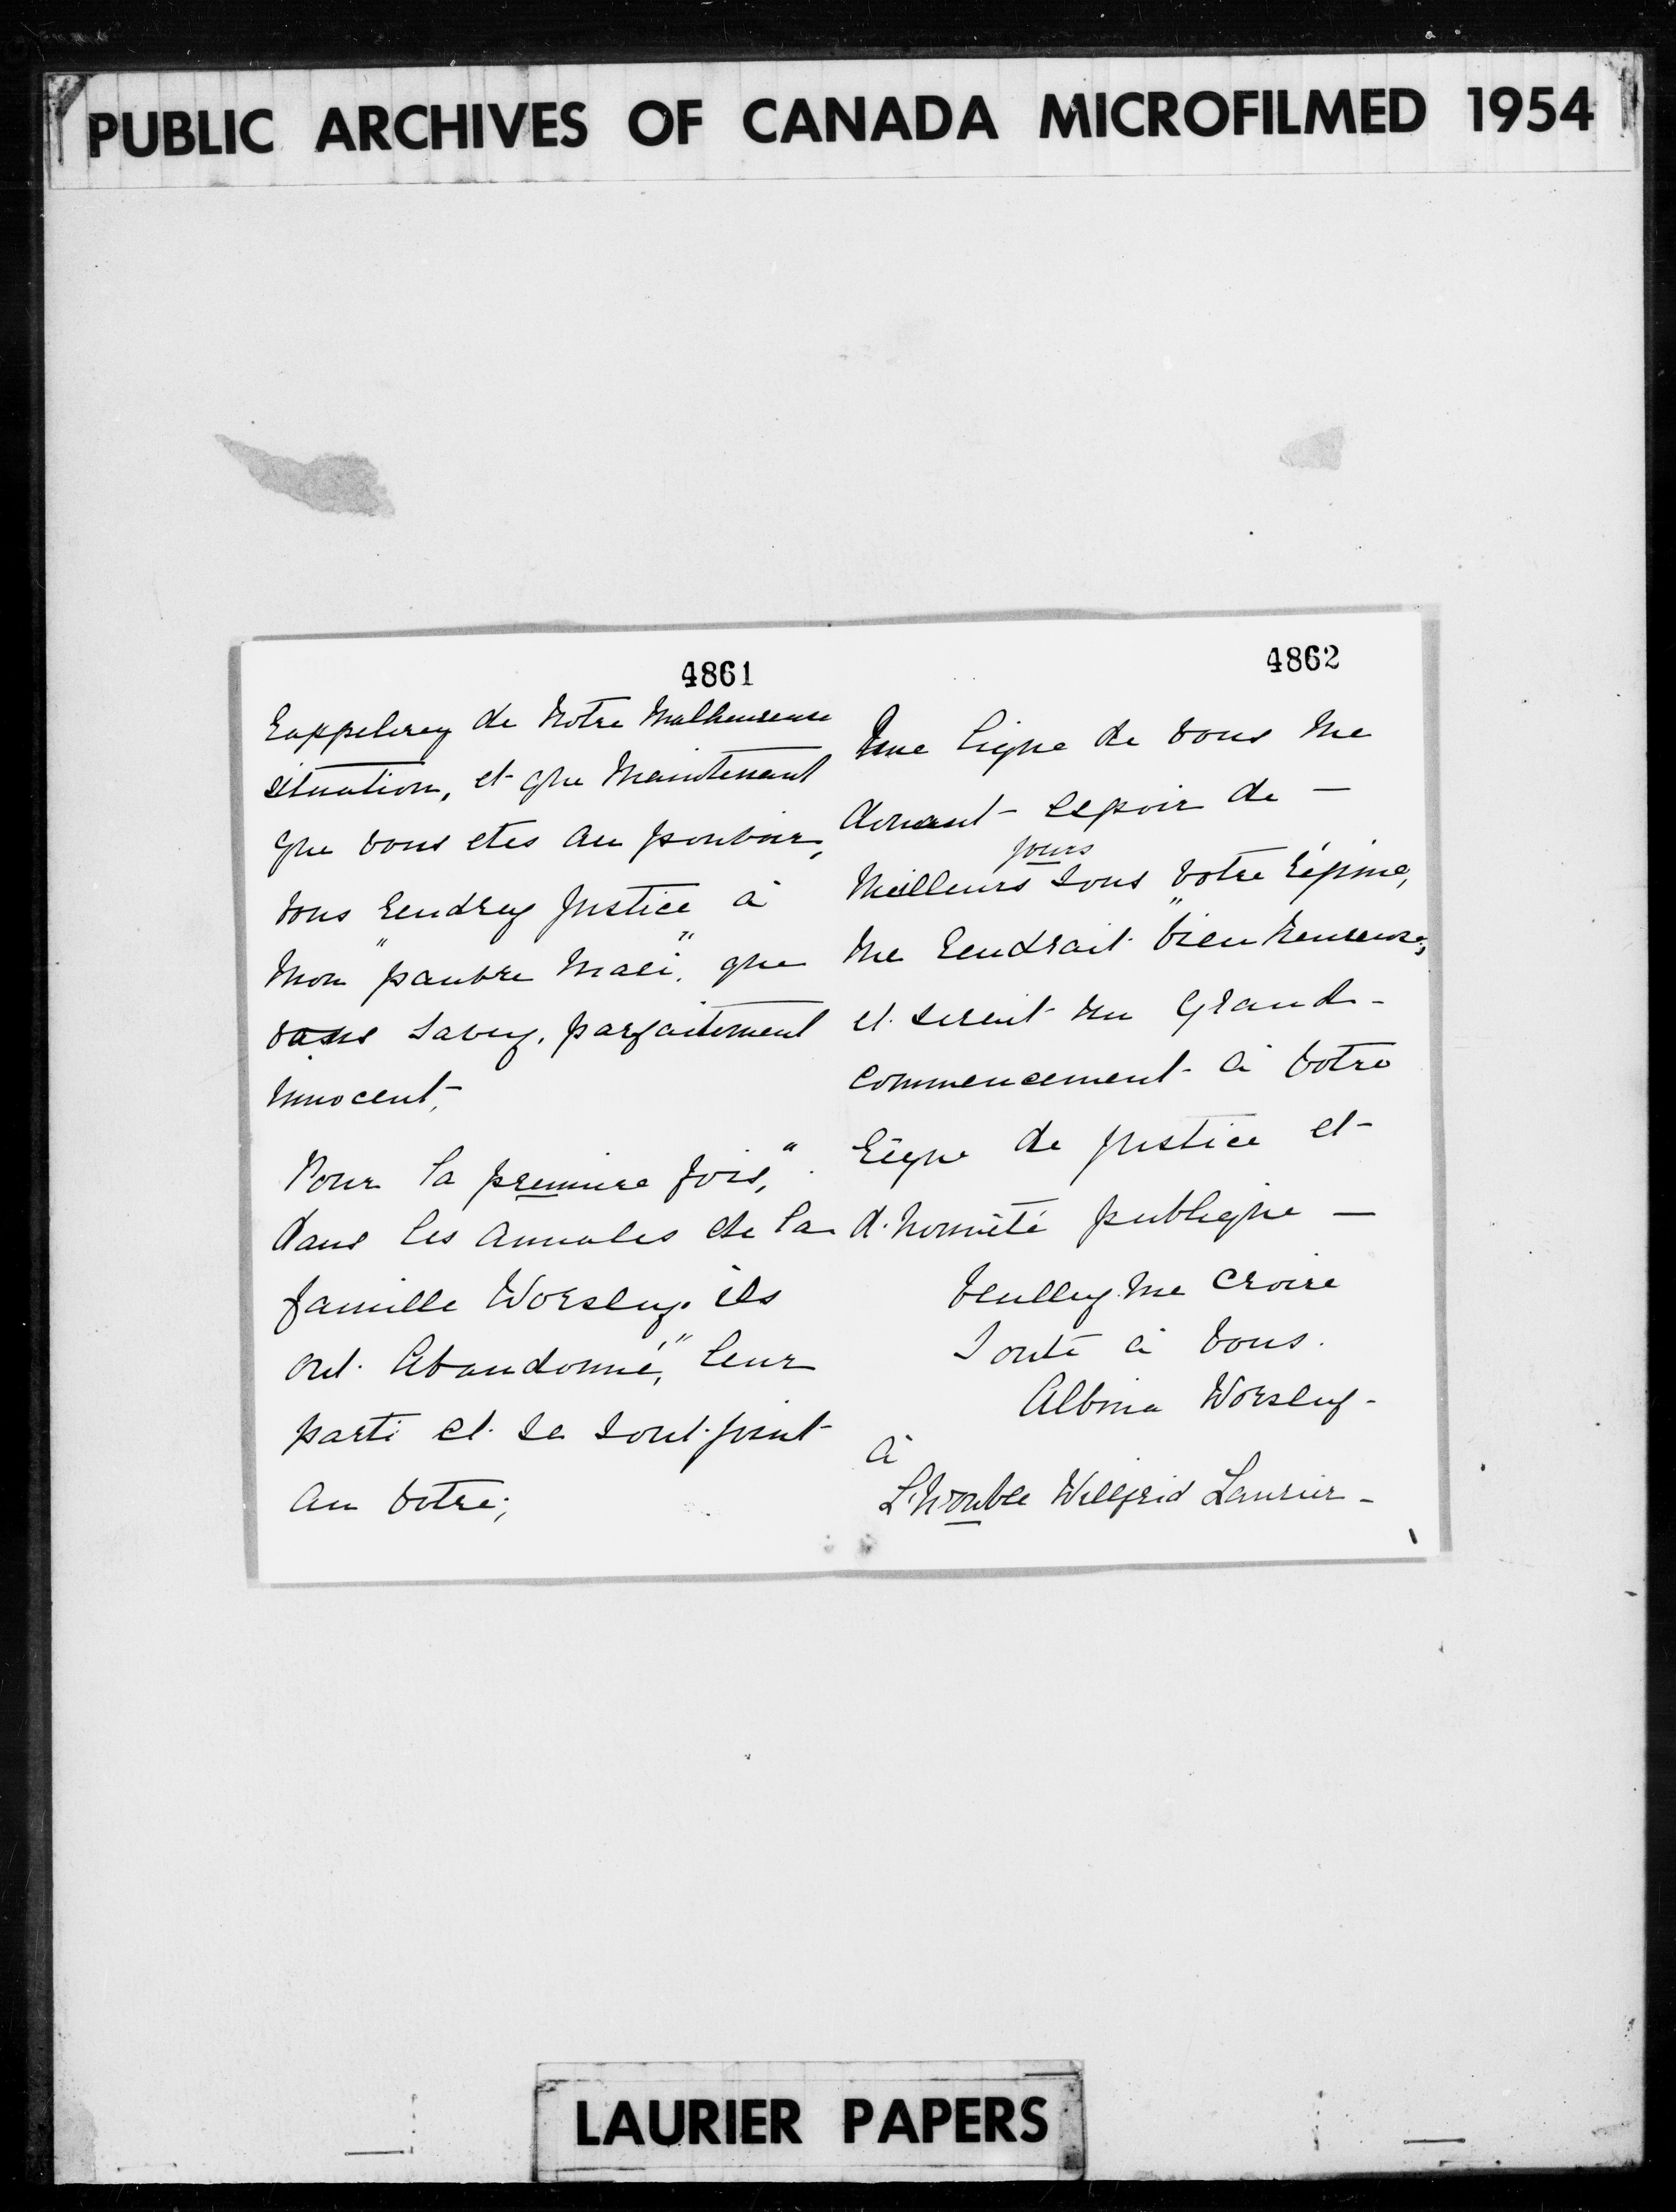 PUBLIC ARCHIVES OF CANADA MICROFILMED 1954
4861
rappelerez de notre malheureuse
situation, et que maintenant
que vous etes au pouvoir,
vous rendrez justice à
mon "pauvre mari", que
vous savez, parfaitement
innocent,
Pour la premiere fois,"
dans les annales de la
famille Worsley. ils
ont abandonné," leur
parti et se sont joint
au votre;
4862
Une ligne de vous me
donant espoir de —
meilleurs jours sous votre régime,
me rendrait "bien heureuse;
et serait un grand -
commencement à votre
règne de justice et
d'honnêté publique —
Veullez me croire
Toute à vous.
Albina Worsley -
à
L'honble Wilfrid Laurier -
LAURIER PAPERS